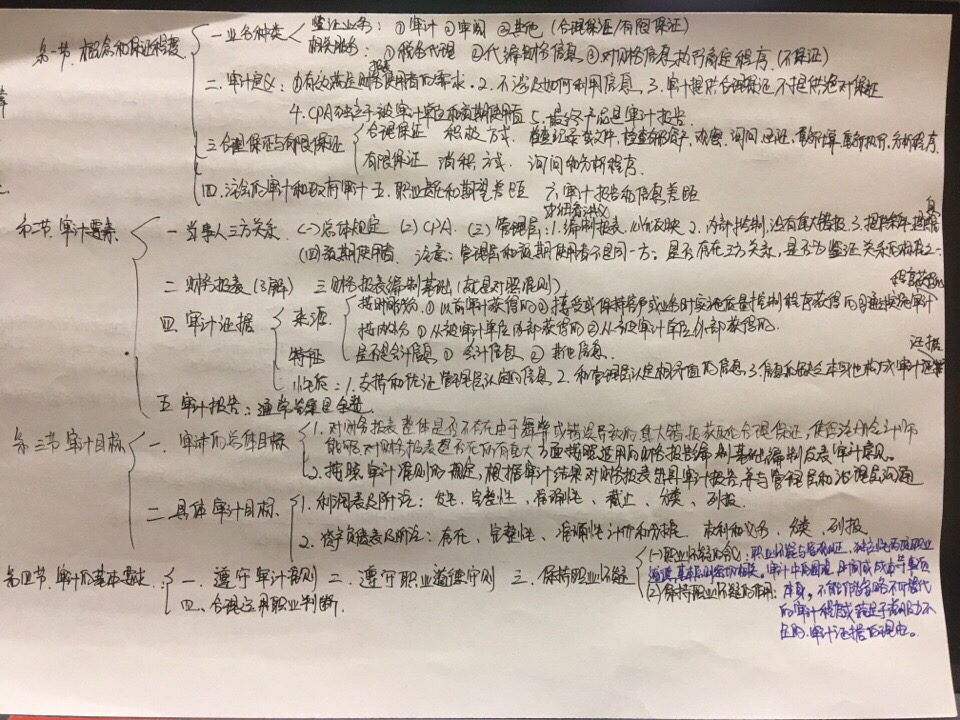 第一节 概念和保证程度
一 业务种类
鉴证业务：①审计 ②审阅 ③其他（合理保证/有限保证）
相关服务：①税务代理 ②代编财务信息 ③对财务信息执行商定程序（不保证）
二、审计定义：①有效满足财务报表使用者的需求. 2. 不涉及如何利用信息. 3. 审计提供合理保证, 不提供绝对保证
4. CPA独立于被审计单位和预期使用者 5. 最终产品是审计报告.
三 合理保证与有限保证
合理保证 积极方式. 检查记录或文件, 检查有形资产, 观察, 询问, 函证, 重新计算, 重新执行, 分析程序.
有限保证 消极方式. 询问和分析程序.
四、注会审计和政府审计 五、职业责任和期望差距 六、审计报告和信息差距
第二节 审计要素
一 当事人三方关系. (一)总体规定 (二) CPA. (三) 管理层: 1. 编制报表, 公允反映 2. 内部控制, 没有重大错报. 3. 提供
(四)预期使用者. 注意: 管理层和预期使用者不是同一方; 是否存在三方关系, 是否为鉴证关系的标准之一
二 财务报表 (了解) 三 财务报表编制基础 (就是对照准则)
四. 审计证据
来源
①以前审计获得的 ②接受或保持客户或业务时实施质量控制程序获得的 ③通过实施审计程序获取的
①从被审计单位内部获得的 ②从被审计单位外部获得的.
是否是会计信息 ①会计信息 ②其他信息.
特征
性质: 1. 支持和佐证管理层认定的信息. 2. 和管理层认定相矛盾的信息. 3. 信息的缺乏本身也构成审计证据
五 审计报告:
第三节 审计目标
一. 审计的总体目标
1. 对财务报表整体是否不存在由于舞弊或错误导致的重大错报获取合理保证, 使得注册会计师
能够对财务报表是否在所有重大方面按照适用的财务报告编制基础编制发表审计意见.
2. 按照审计准则的规定, 根据审计结果对财务报表出具审计报告, 并与管理层和治理层沟通
二 具体审计目标
1. 利润表及附注: 发生、完整性、准确性、截止、分类、列报
2. 资产负债表及附注: 存在、完整性、准确性计价和分摊、权利和义务、分类、列报
第四节. 审计的基本要求
一. 遵守审计准则 二. 遵守职业道德守则 三. 保持职业怀疑
四、合理运用职业判断.
(一)职业怀疑的含义: 职业怀疑与客观公正、独立性两项职业
道德基本原则密切相关. 审计中的困难、时间或成本等事项
(2) 保持职业怀疑的作用: 本身, 不能作为省略不可替代
的审计程序或满足于说服力不
足的审计证据的理由。